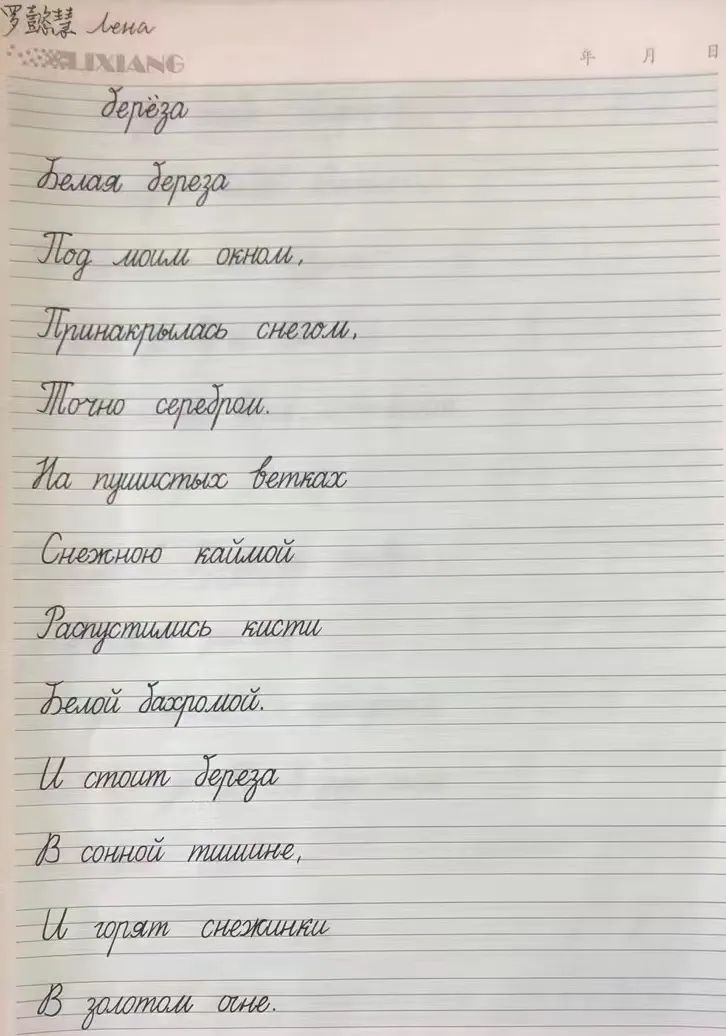 罗懿慧 Лена
LIXIANG
年 月 日
берёза
Белая береза
Под моим окном,
Принакрылась снегом,
Точно серебром.
На пушистых ветках
Снежною каймой
Распустились кисти
Белой бахромой.
И стоит береза
В сонной тишине,
И горят снежинки
В золотом огне.